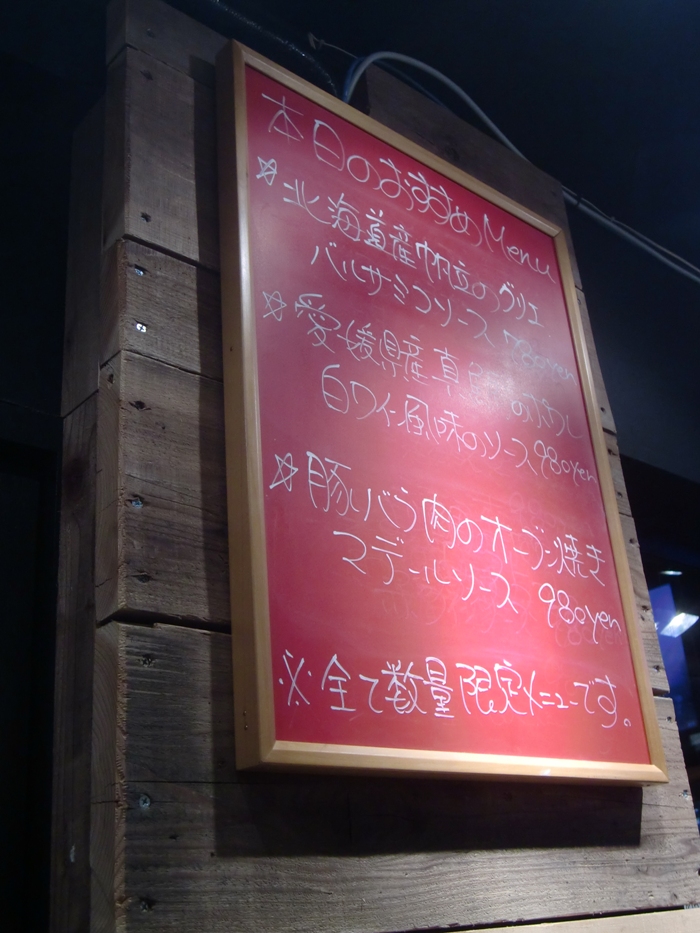 本日のおすすめMenu
☆北海道産帆立のグリエ
バルサミコソース 780yen
☆愛媛県産真 のポワレ
白ワイン風味のソース 980yen
☆豚バラ肉のオーブン焼き
マデールソース 980yen
※全て数量限定メニューです。